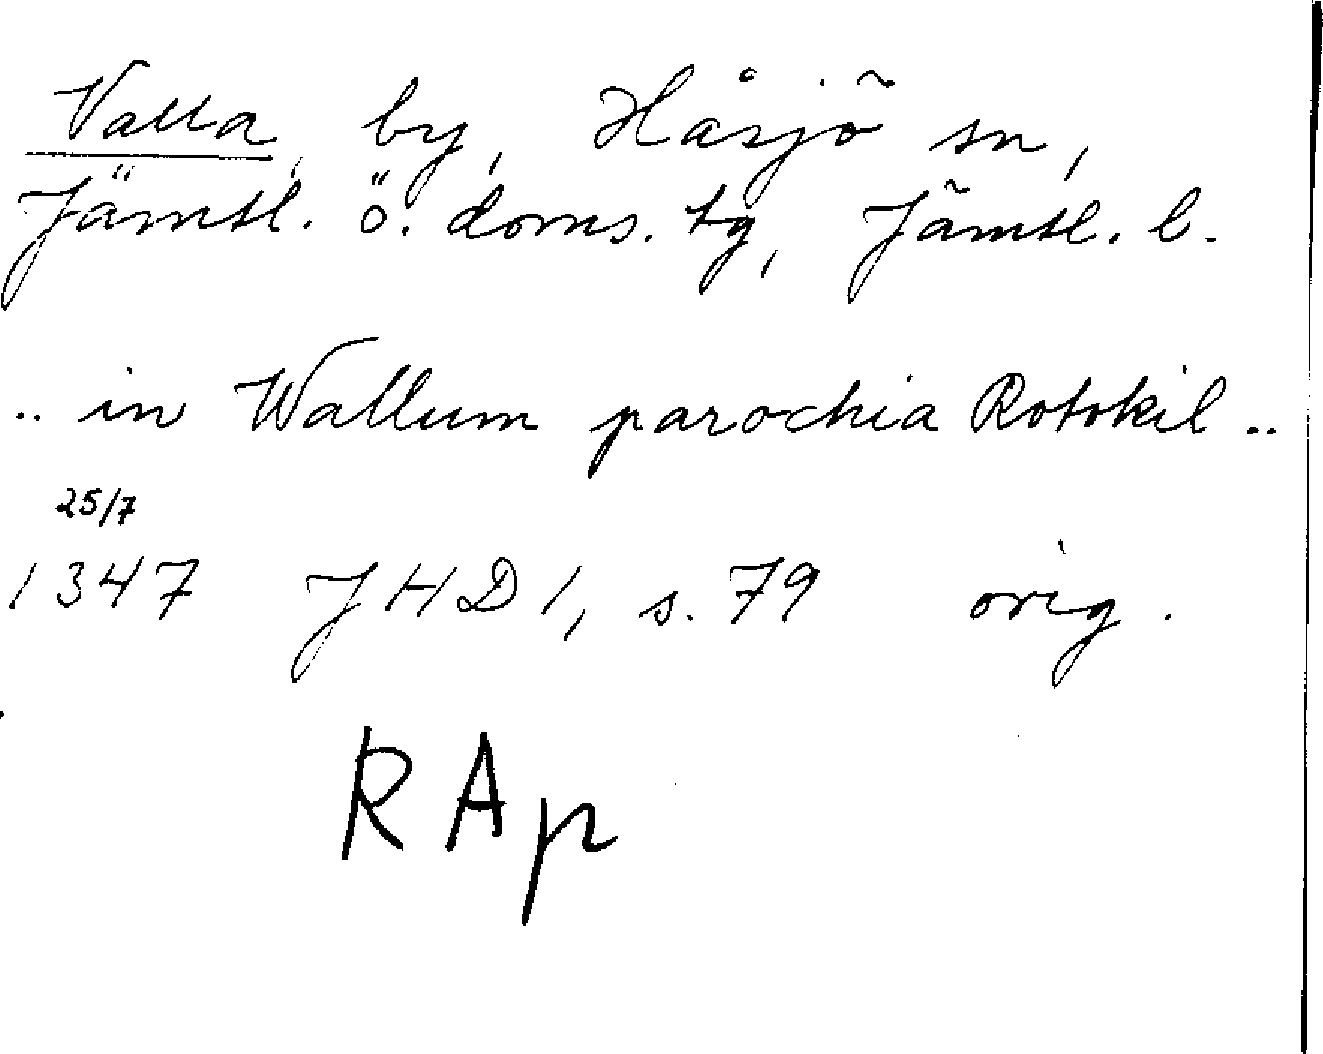 Valla, by, Håsjö sn,
Jämtl. ö. doms. tg, Jämtl. l.
.. in Wallum parochia Rotokil ..
25/7
1347 JHD 1, s. 79 orig.
RAp